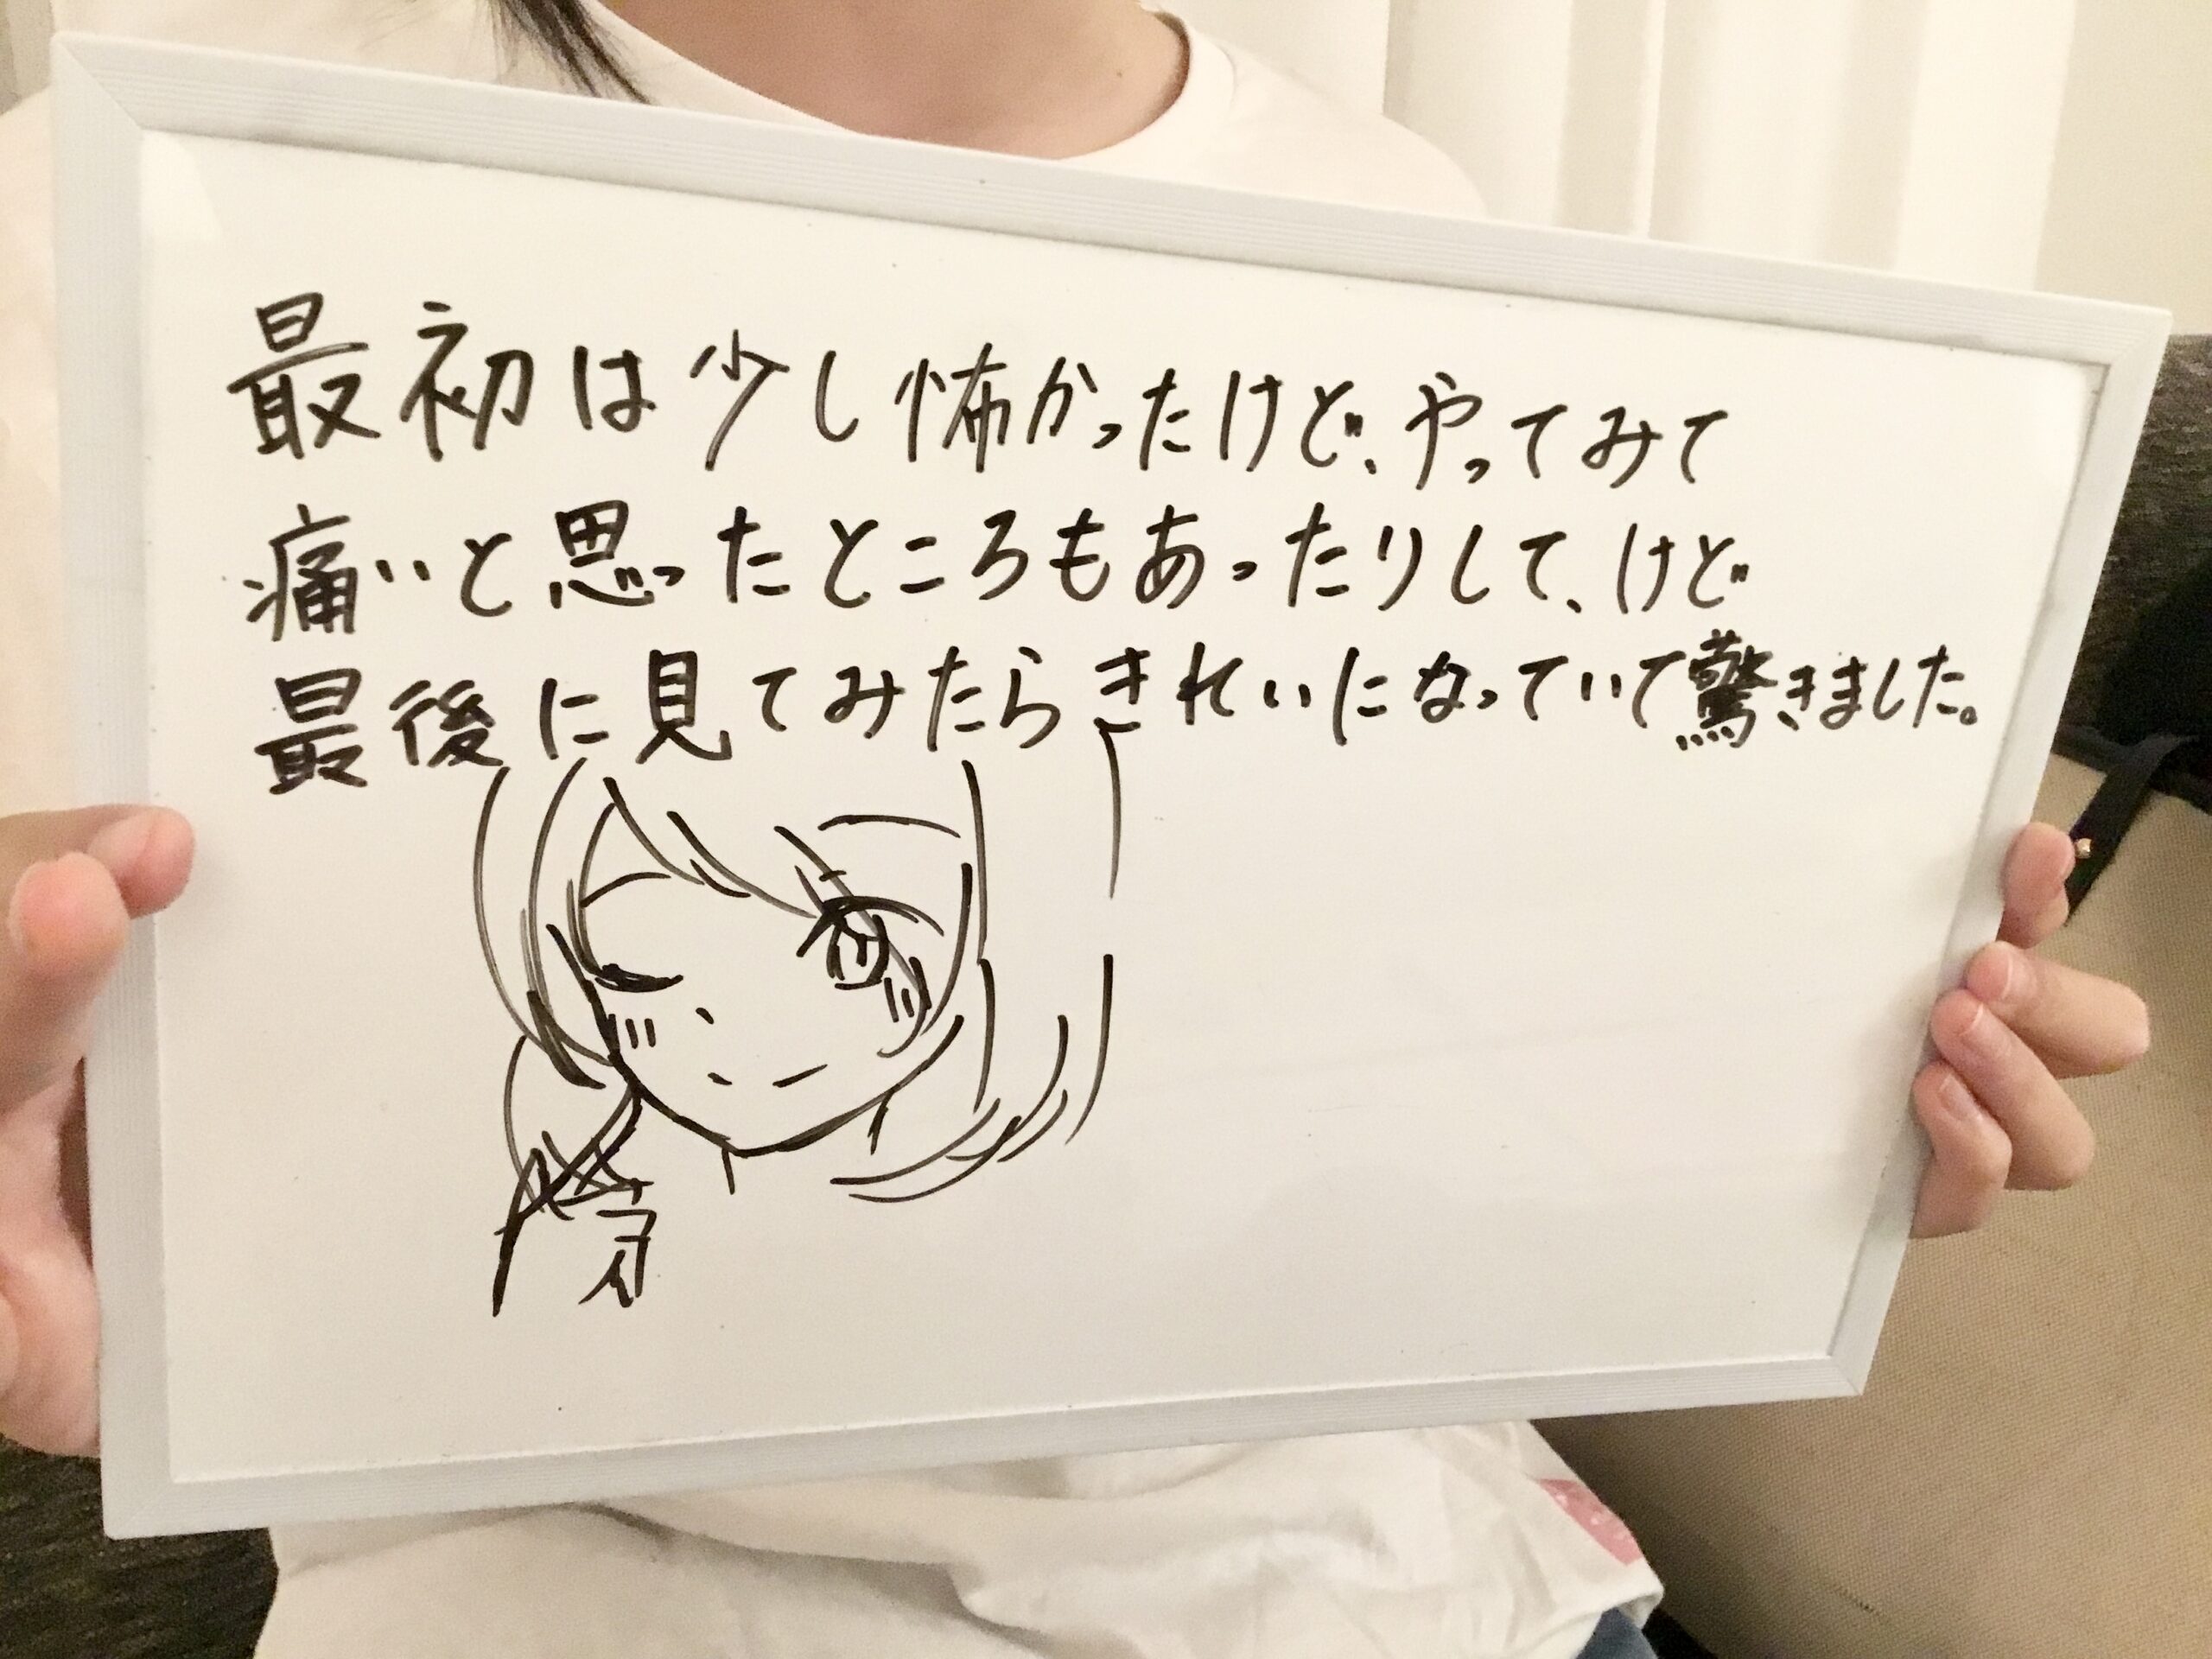 最初は少し怖かったけど、やってみて
痛いと思ったところもあったりして、けど
最後に見てみたらきれいになっていて驚きました。